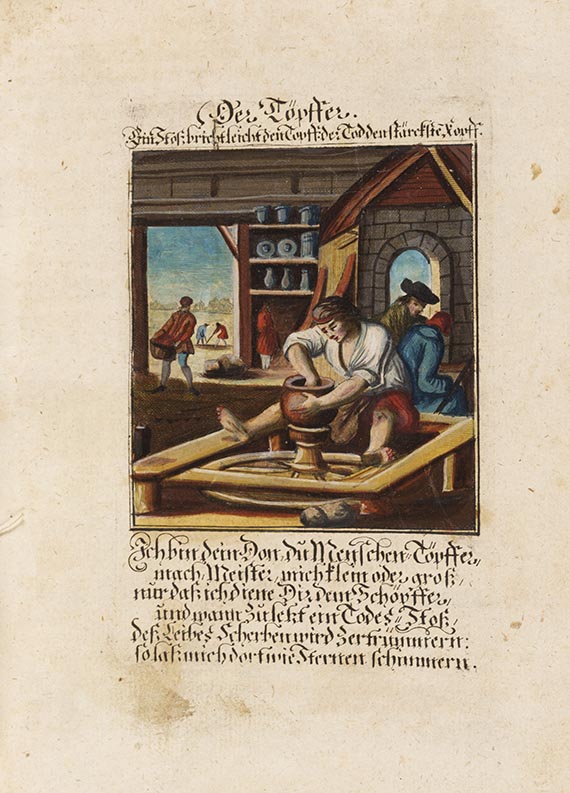 Der Töpffer.
Ein Stoß bricht leicht den Topff: der Tod den stärckste Kopff.
Ich bin dein Don, du Menschen-Töpffer,
mach, Meister, mich klein oder groß,
nur daß ich diene Dir, dem Schöpffer,
und wann zu letzt ein Todes-Stoß,
deß Leibes Scherben wird zertrümmern:
so laß mich dort wie Sternen schimmern.